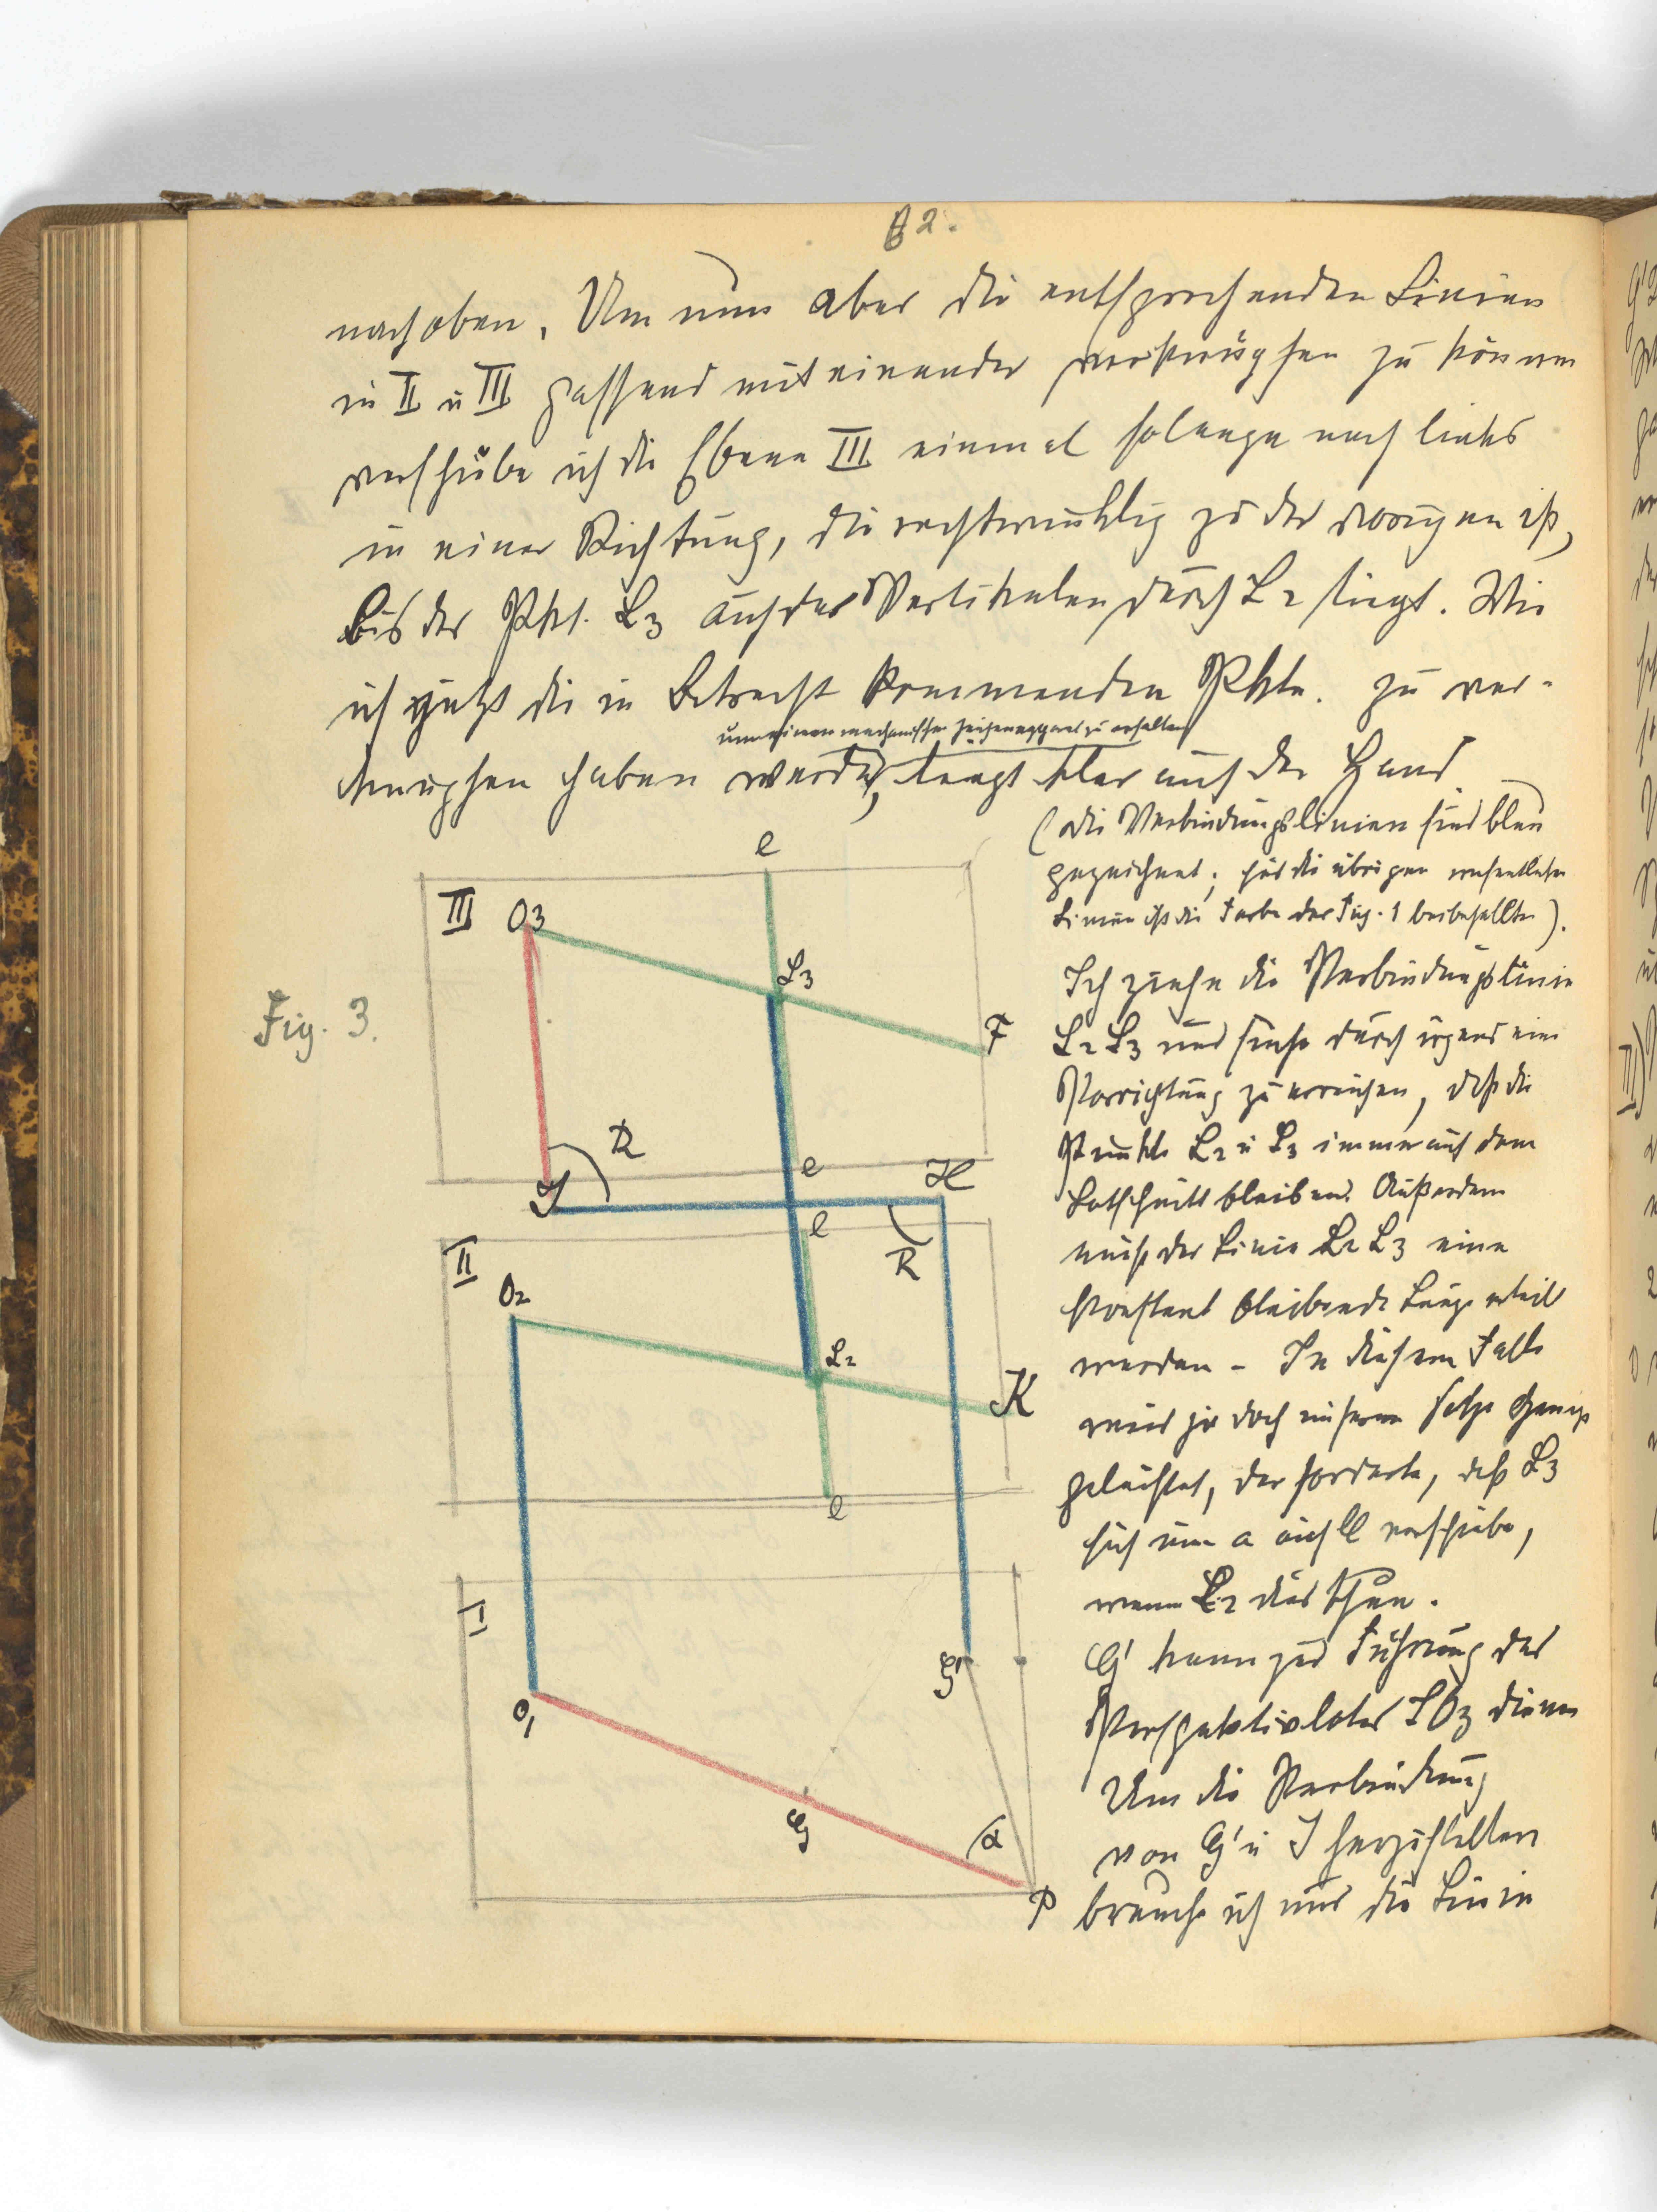 82.
nach oben. Um nun aber die entsprechenden Linien
in II u III passend miteinander verknüpfen zu können
verschübe ich die Ebene III einmal solange nach links
in einer Richtung, die rechtwinklig zu der vorigen ist,
bis der Pkt. L3 auf der Vertikalen durch L2 liegt. Wie
ich jetzt die in Betracht kommenden Pkte. zu ver-
um einen mechanischen Zeichenapparat zu erhalten
knüpfen haben werde, liegt klar auf der Hand.
(die Verbindungslinien sind blau
gezeichnet; für die übrigen wesentlichen
Linien ist die Farbe der Fig. 1 beibehalten).
Ich ziehe die Verbindungslinie
L2 L3 und suche durch irgend eine
Vorrichtung zu erreichen, daß die
Punkte L2 u L3 immer auf dem
Lotschnitt bleiben. Außerdem
muß der Linie L2 L3 eine
konstant bleibende Länge erteilt
werden - In diesem Falle
wird ja doch unserem Satze Genüge
geleistet, der forderte, daß L3
sich um a auf ll verschiebe,
wenn L2 dies thue.
G' kann zur Führung des
Perspektivlotes JO3 dienen
Um die Verbindung
von G' u J herzustellen
brauche ich nur die Linie
Fig. 3.
III
O3
l
L3
F
R
l
J
H
II
l
R
O2
L2
K
l
I
G'
O1
G
α
P